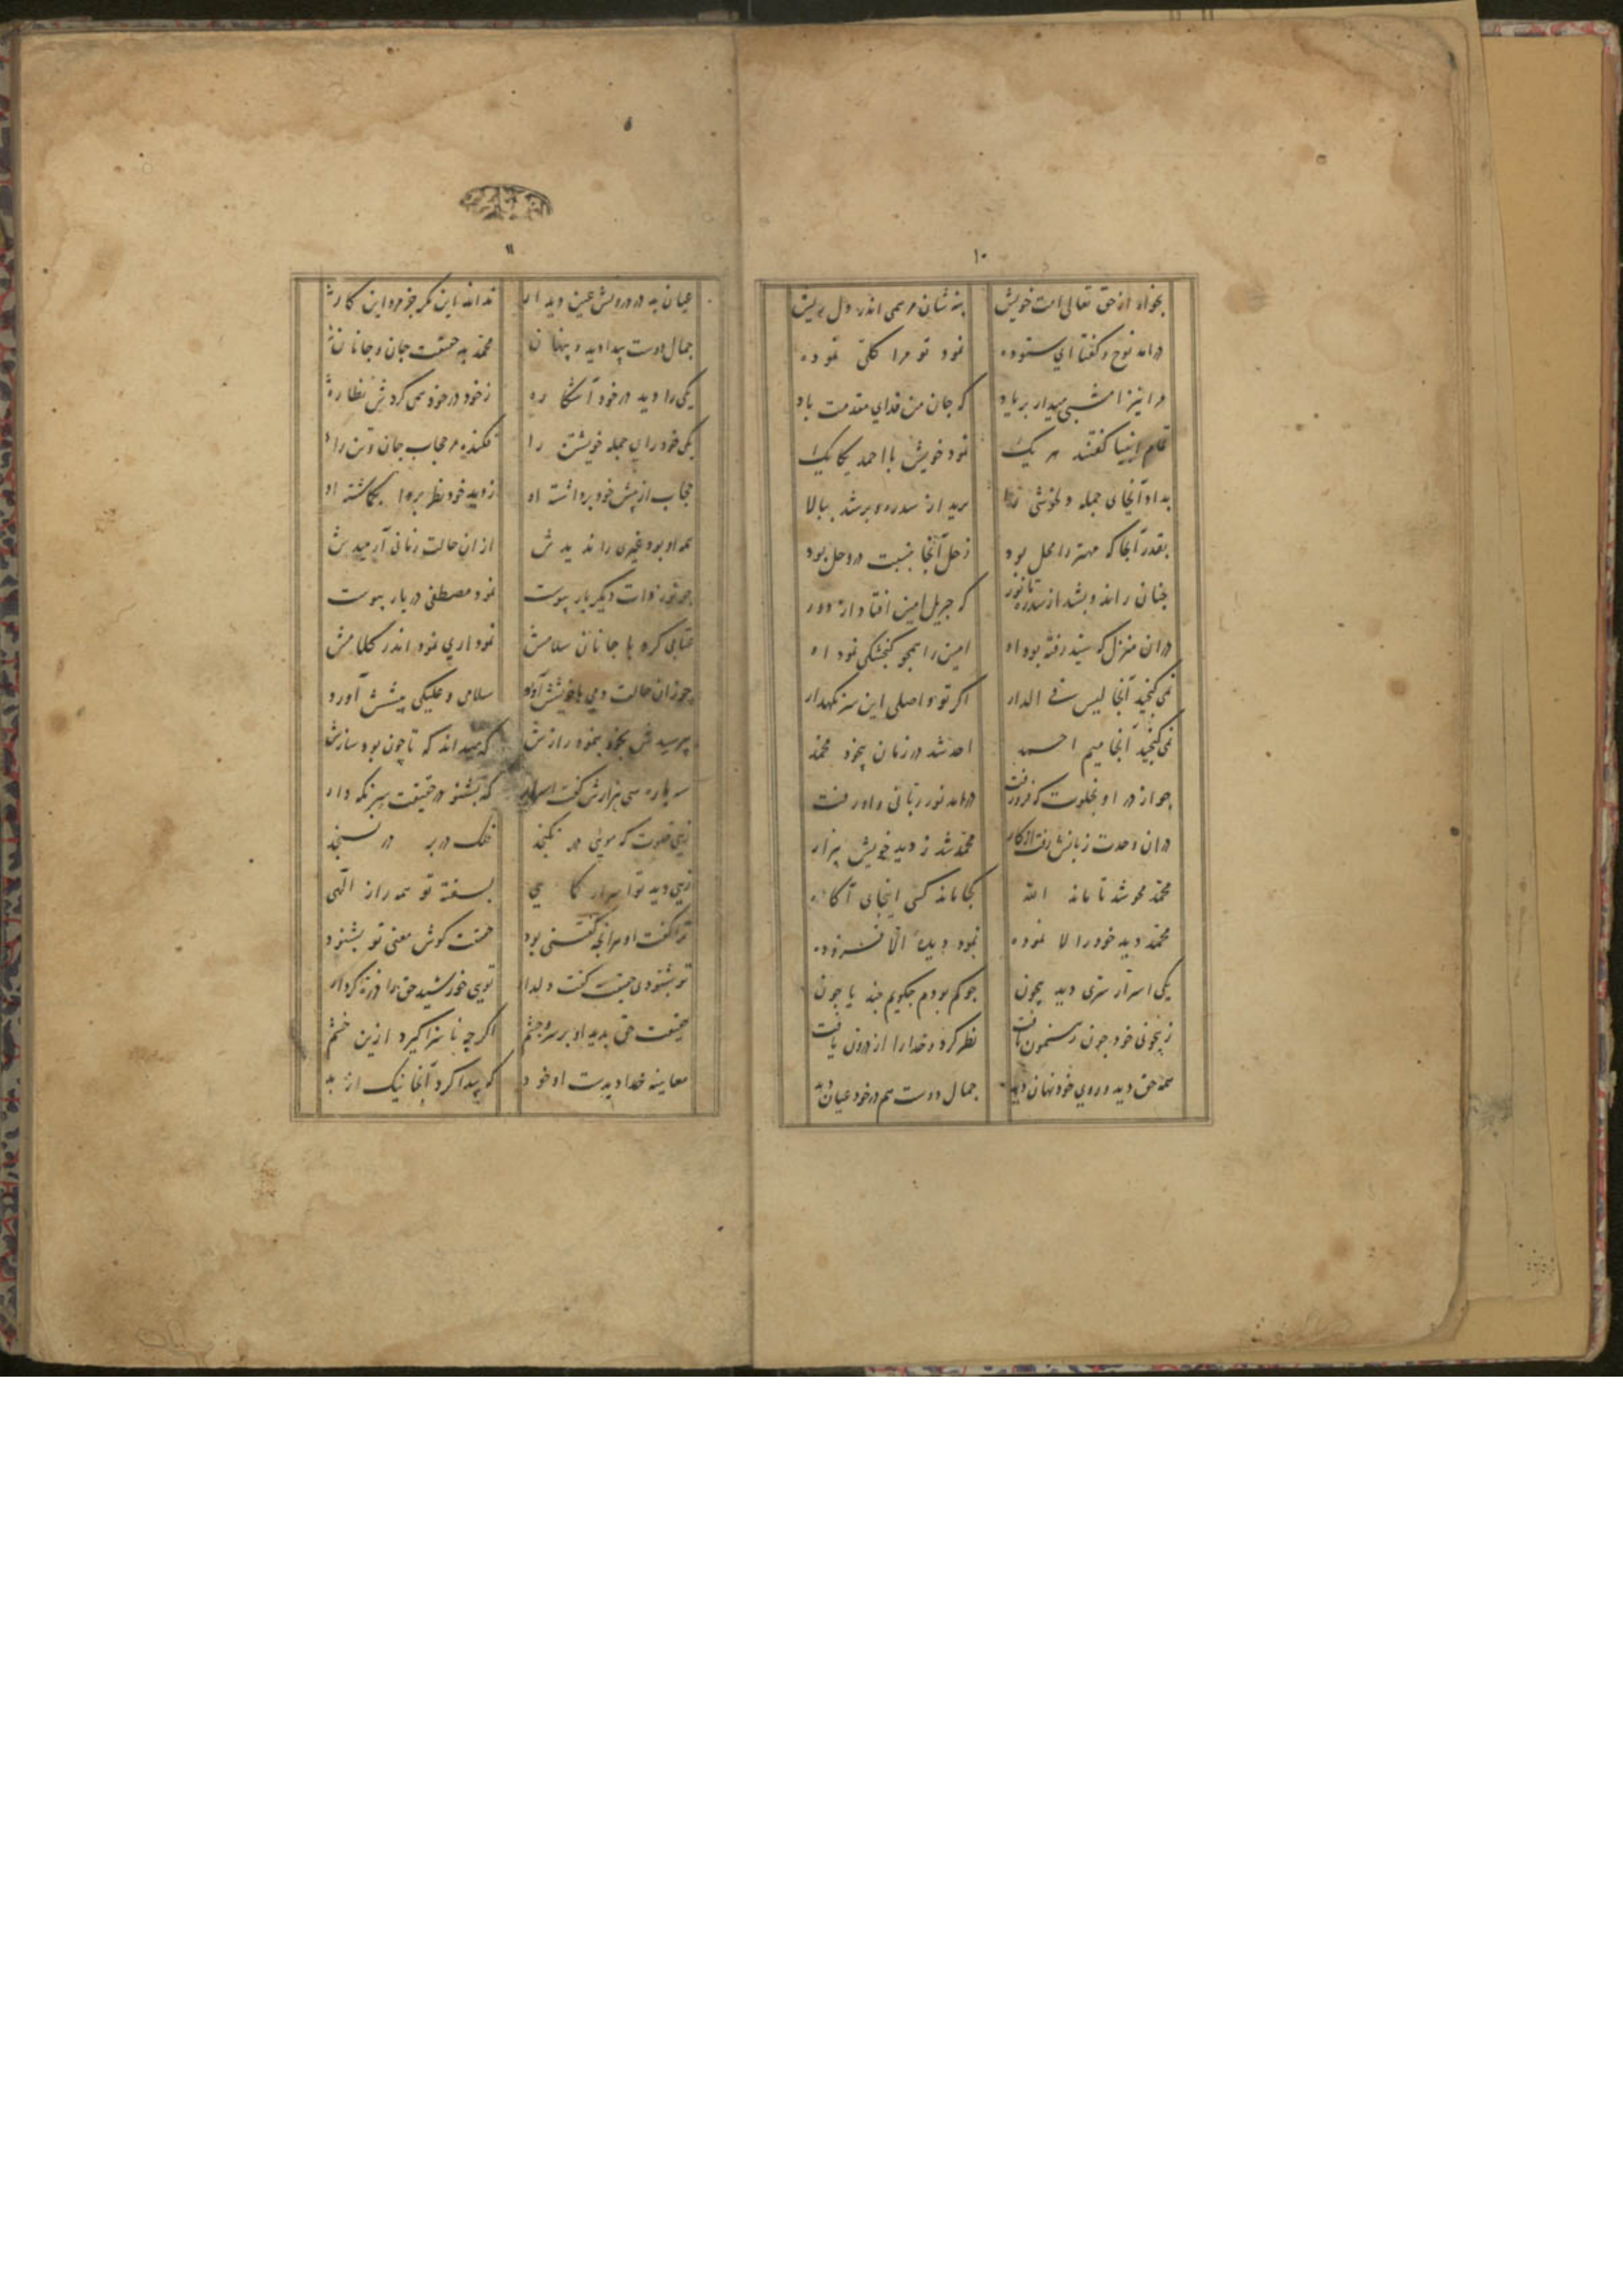 ۱۰
بخواه از حق تعالی امت خویش بنه شان مرهمی اندر دل ریش
درامد نوح و کفتا ای ستوده نمود تو مرا کلی نموده
مرا نیز امشبی میدار بر یاد که جان من فدای مقدمت باد
تمام انبیا کفتند هر یک نمود خویش با احمد یکایک
بداد آنجای جمله دلخوشی را برید از سدره و بر شد ببالا
بقدر آنجا که مهتر را محل بود زحل آنجا بنسبت در وحل بود
چنان راند و بشد از سدره تا نور که جبریل امین افتاد ازو دور
در ان منزل که سید رفته بود او امین را همچو کنجشکی نمود او
نمی کنجید آنجا لیس فی الدار اکر تو واصلی این سر نکهدار
نمی کنجید آنجا میم احمد احد شد در زمان بیخود محمد
چو از در او بخلوت که فرو رفت درامد نور ربانی و او رفت
در ان وحدت زبانش رفت از کار محمد شد ز دید خویش بیزار
محمد محو شد تا ماند الله کجا ماند کسی اینجای آکاه
محمد دید خود را لا نموده نمود دیده الا فزوده
یکی اسرار سری دید بیچون چو کم بودم چکویم چند یا چون
ز بیچونی خود چون رهنمون یافت نظر کرد و خدا را از درون یافت
همه حق دید و روی خود نهان دید جمال دوست هم در خود عیان دید
۱۱
عیان بد در درونش عین دیدار نداند این مکر جز مرد این کار
جمال دوست پیدا دید و پنهان محمد بد حقیقت جان و جانان
یکی را دید در خود آشکاره ز خود در خود همی کردش نظاره
یکی خود را ی جمله خویشتن را فکنده مر حجاب جان و تن را
حجاب از پیش خود برداشته او ز دید خود نظر بکاشته او
همه او بود غیری را ندیدش از ان حالت زمانی آرمیدش
چو نور ذات دیکر بار پیوست نمود مصطفی در یار پیوست
عتابی کرد با جانان سلامش نموداری نمود اندر کلامش
چو زان حالت دمی با خویشش آورد سلامی و علیکی پیشش آورد
بپرسیدش بخود بنمود رازش که میداند که تا چون بود سازش
سه باره سی هزارش کفت اسرار که بشنو در حقیقت سر نکه دار
زهی خلوت که مویی در نکنجد فلک در بر در نسنجد
زهی دید تو اسرار کماهی بسفته تو همه راز الهی
ترا کفت او هر آنچه کفتنی بود حقیقت کوش معنی تو بشنود
تو بشنودی حقیقت کفت دلدار تویی خورشید حق ما ذره کردار
حقیقت حق بدید او بر سر و چشم اکرچه ناسزا کیرد ازین خشم
معاینه خدا دیدست او خود که پیدا کرد آنجا نیک از بد